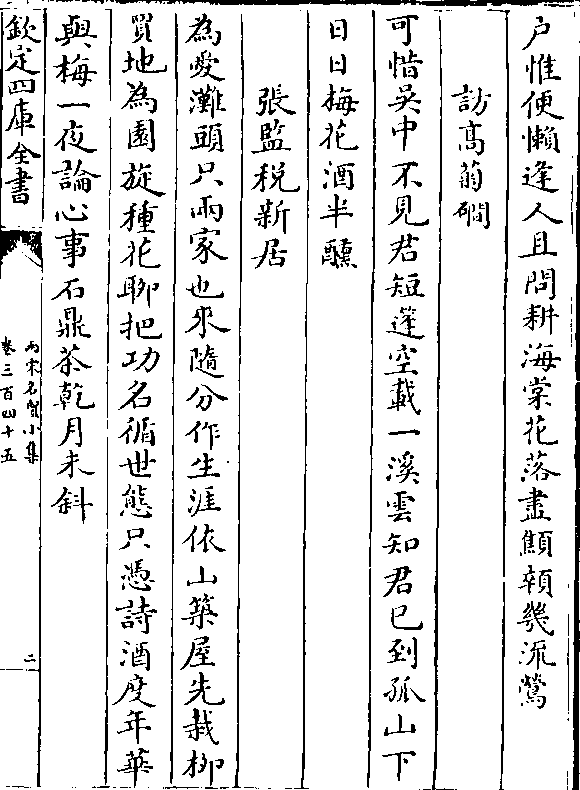 户惟便懶逢人且問耕海棠花落盡顦顇幾流鶯
訪高菊磵
可惜吳中不見君短篷空載一溪雲知君已到孤山下
日日梅花酒半醺
張監稅新居
為愛灘頭只兩家也來隨分作生涯依山築屋先栽柳
買地為園旋種花聊把功名循世態只憑詩酒度年華
與梅一夜論心事石鼎茶乾月未斜
欽定四庫全書
兩宋名賢小集
卷三百四十五
二